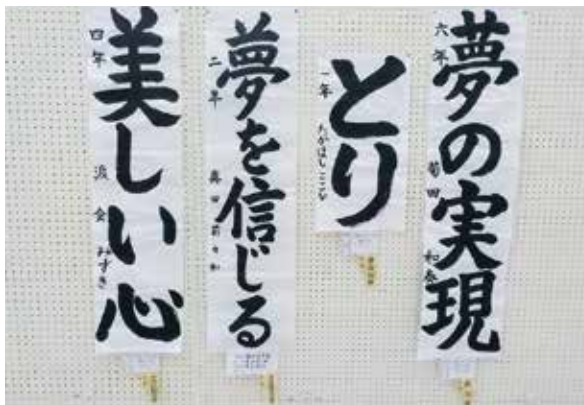 夢の実現
六年 菊田 和奏
とり
一年 たかはし ここな
夢を信じる
二年
美しい心
四年 渡会 みずき